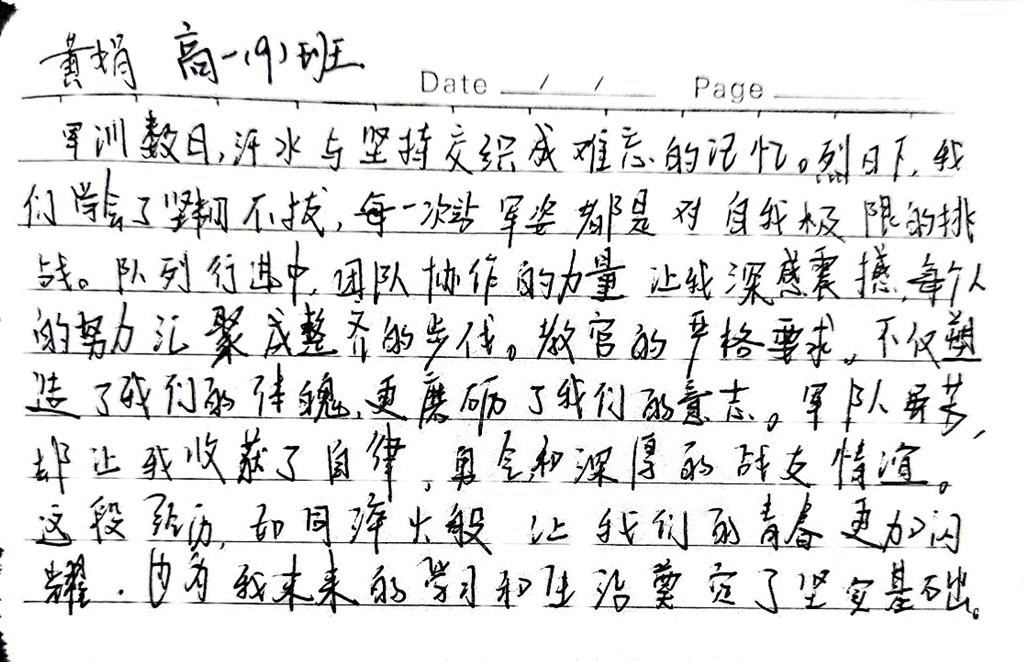 黄娟 高一(9)班
Date / / Page
军训数日,汗水与坚持交织成难忘的记忆。烈日下,我
们学会了坚韧不拔,每一次站军姿都是对自我极限的挑
战。队列行进中,团队协作的力量让我深感震撼,每个人
的努力汇聚成整齐的步伐。教官的严格要求,不仅塑
造了我们的体魄,更磨砺了我们的意志。军队虽苦,
却让我收获了自律,勇气和深厚的战友情谊。
这段经历,如同淬火般 让我们的青春更加闪
耀.也为我未来的学习和生活奠定了坚实基础。